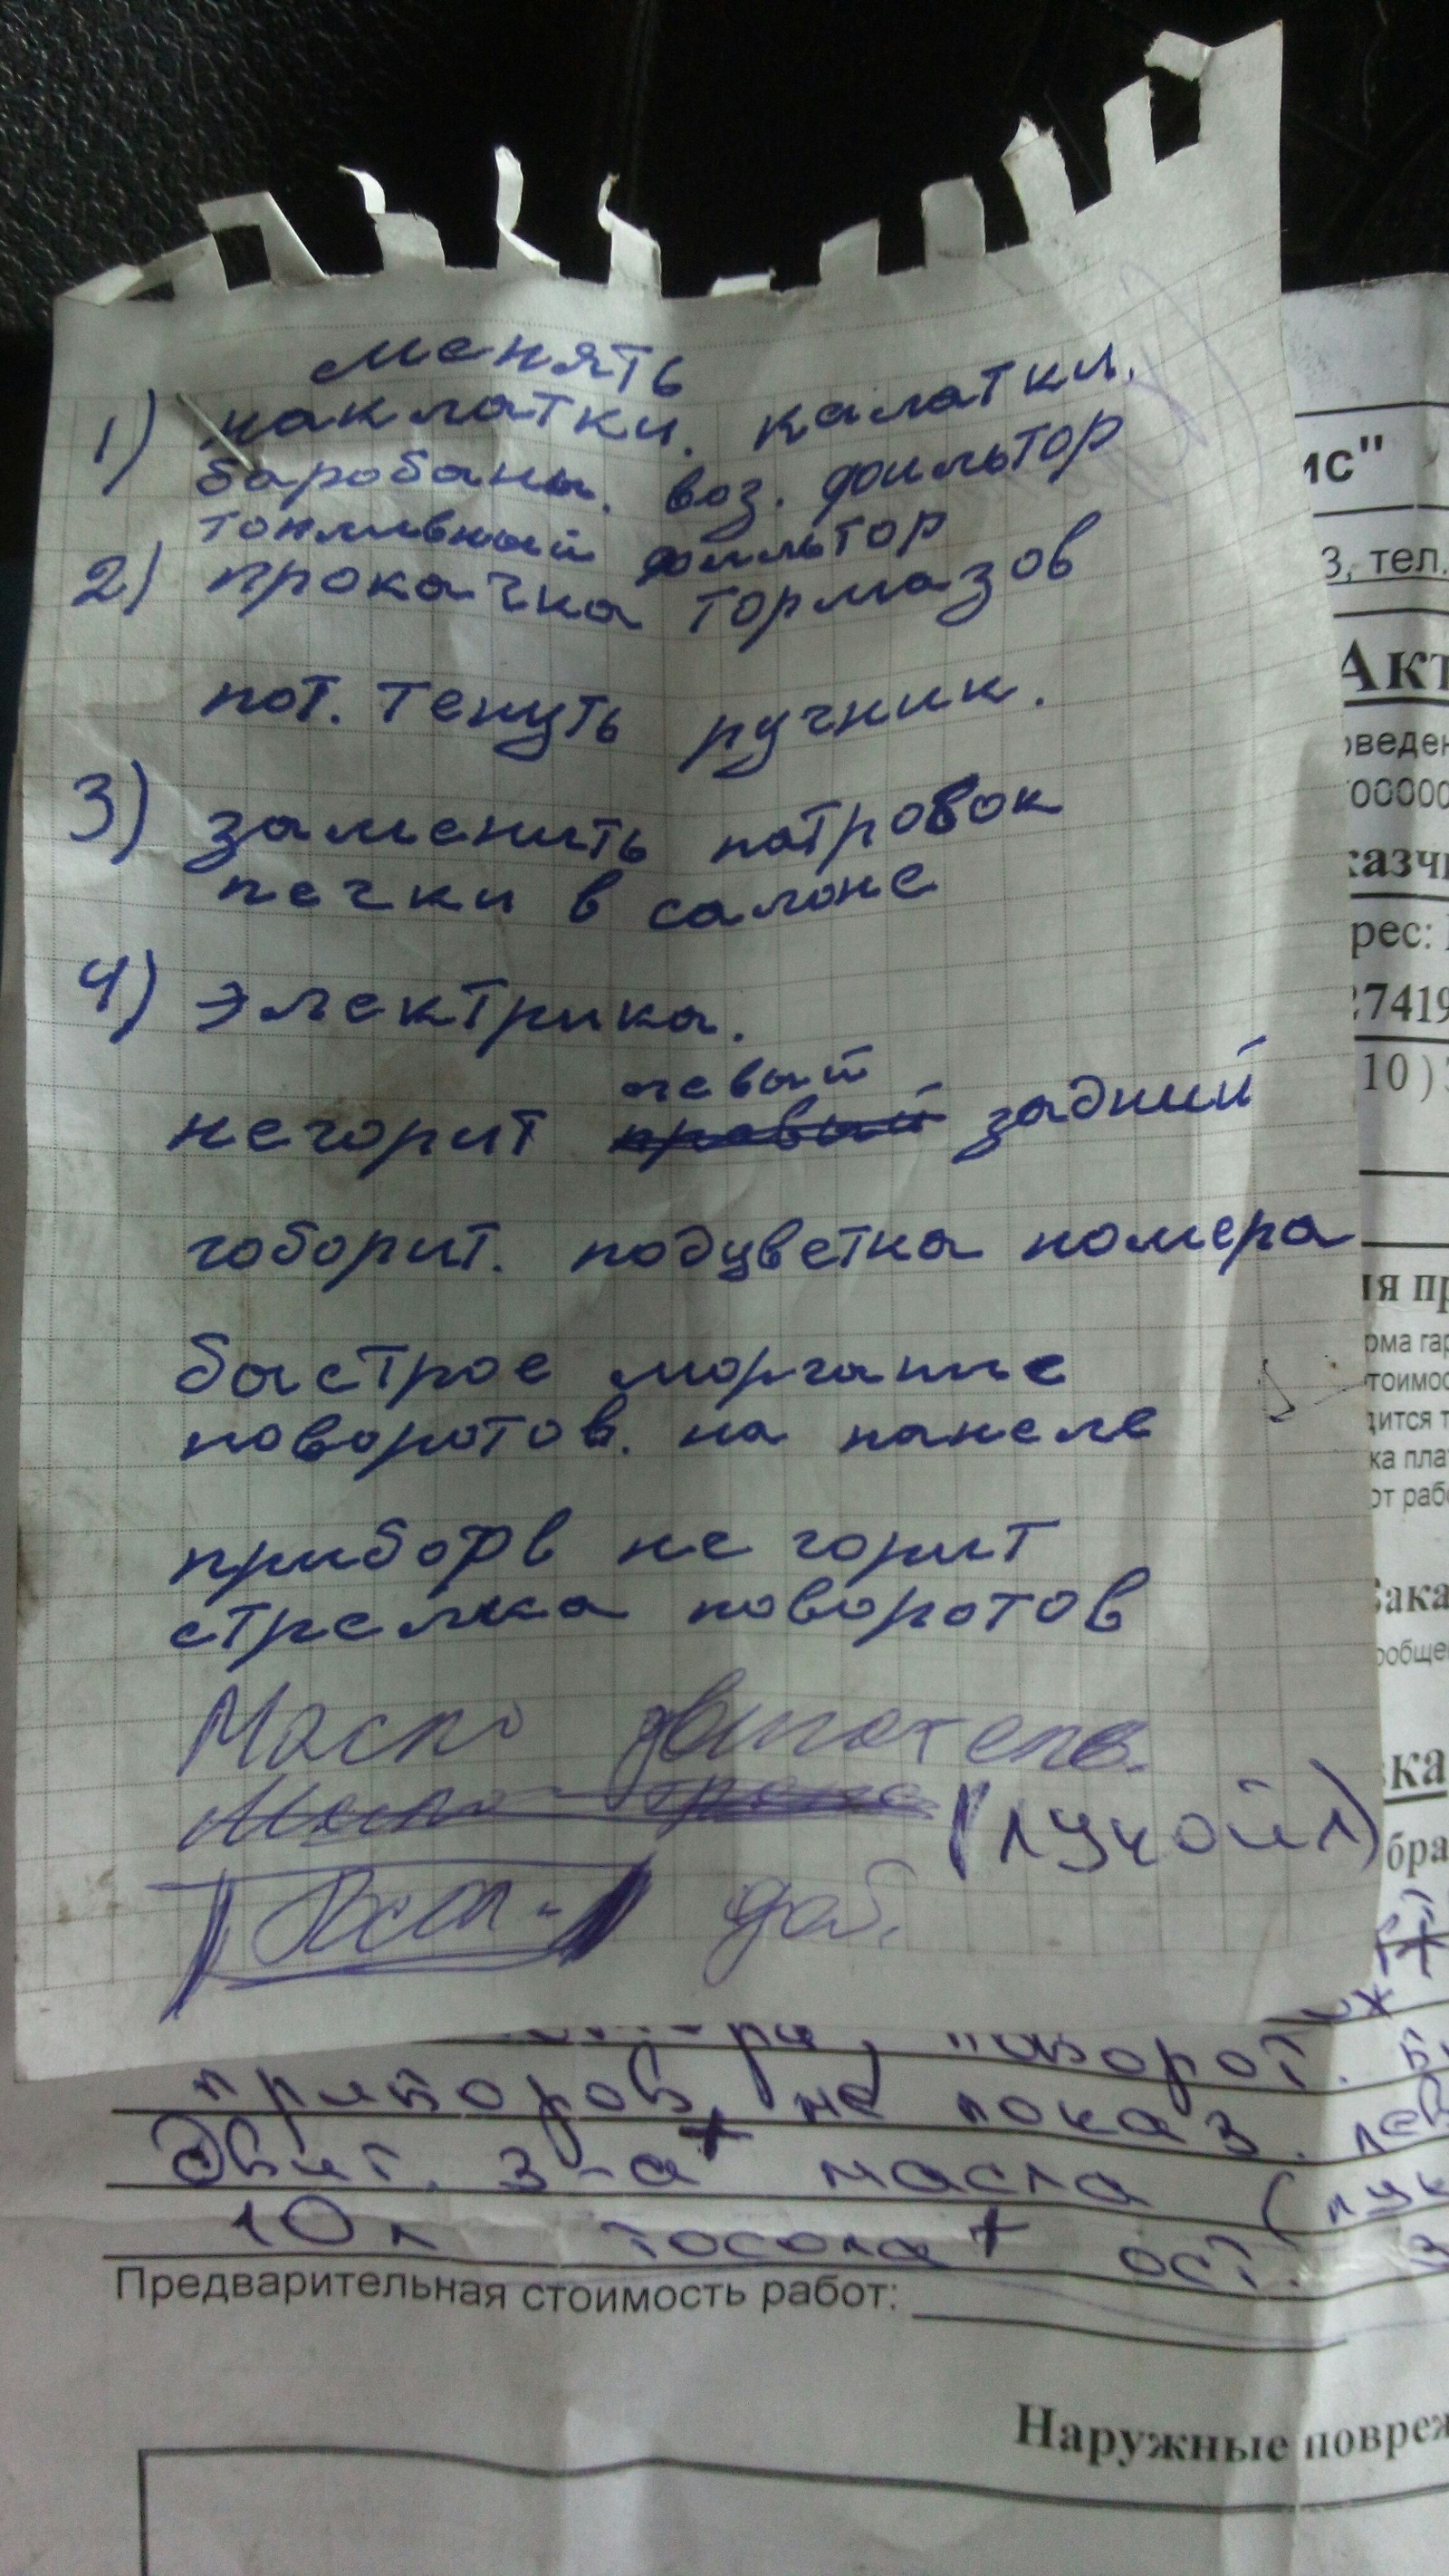 менять
1) наклатки. калатки.
баробаны. воз. фильтор
топливный фильтор
2) прокачка тормазов
пот. тенуть ручник.
3) заменить патровок
печки в салоне
4) электрика.
левый
негорит правый задний
гоборит. подцветка номера
быстрое моргание
поворотов. на панеле
приборв не горит
стрелка поворотов
Масло двигателя.
(лукойл)
доб.
ис"
3, тел.
Акт
оведен
00000
казчи
рес:
27419
10)
ия пр
рма гар
тоимос
дится т
ка пла
от рабо
Зака
ообще
вка
бра
поворот.
приборов не показ. лев
Двиг. з-а+ масла (лук
10л тосола+ ост. з
Предварительная стоимость работ:
Наружные повреж